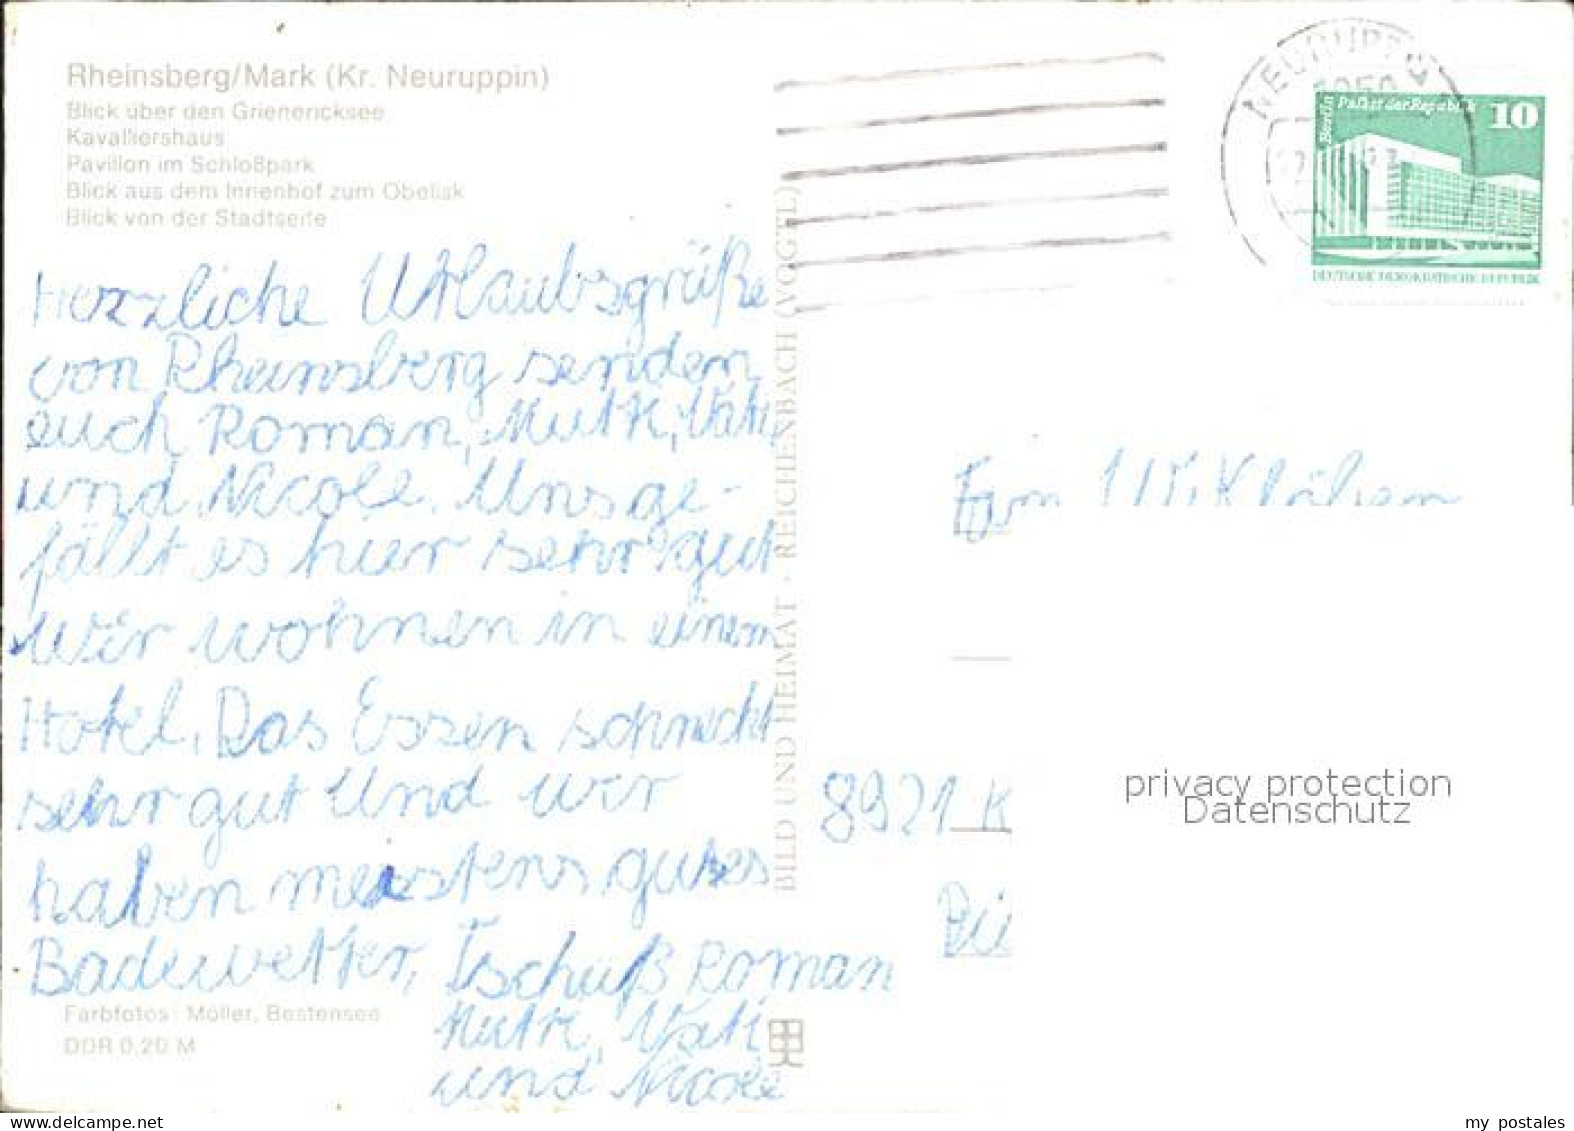 Rheinsberg/Mark (Kr. Neuruppin)
Blick über den Grienericksee
Kavaliershaus
Pavillon im Schloßpark
Blick aus dem Innenhof zum Obelisk
Blick von der Stadtseite
Herzliche Urlaubsgrüße
von Rheinsberg senden
euch Roman, Mutti, Vati,
und Nicole. Uns ge-
fällt es hier sehr gut
wir wohnen in einem
Hotel. Das Essen schmeckt
sehr gut Und wir
haben meistens gutes
Badewetter, Tschüß Roman
Mutti, Vati
und Nicole
Farbfotos: Möller, Bestensee
DDR 0,20 M
BILD UND HEIMAT · REICHENBACH (VOGTL)
NEURUPPIN
Berlin Palast der Republik 10
DEUTSCHE DEMOKRATISCHE REPUBLIK
Fam
8921 K
privacy protection
Datenschutz
my postales